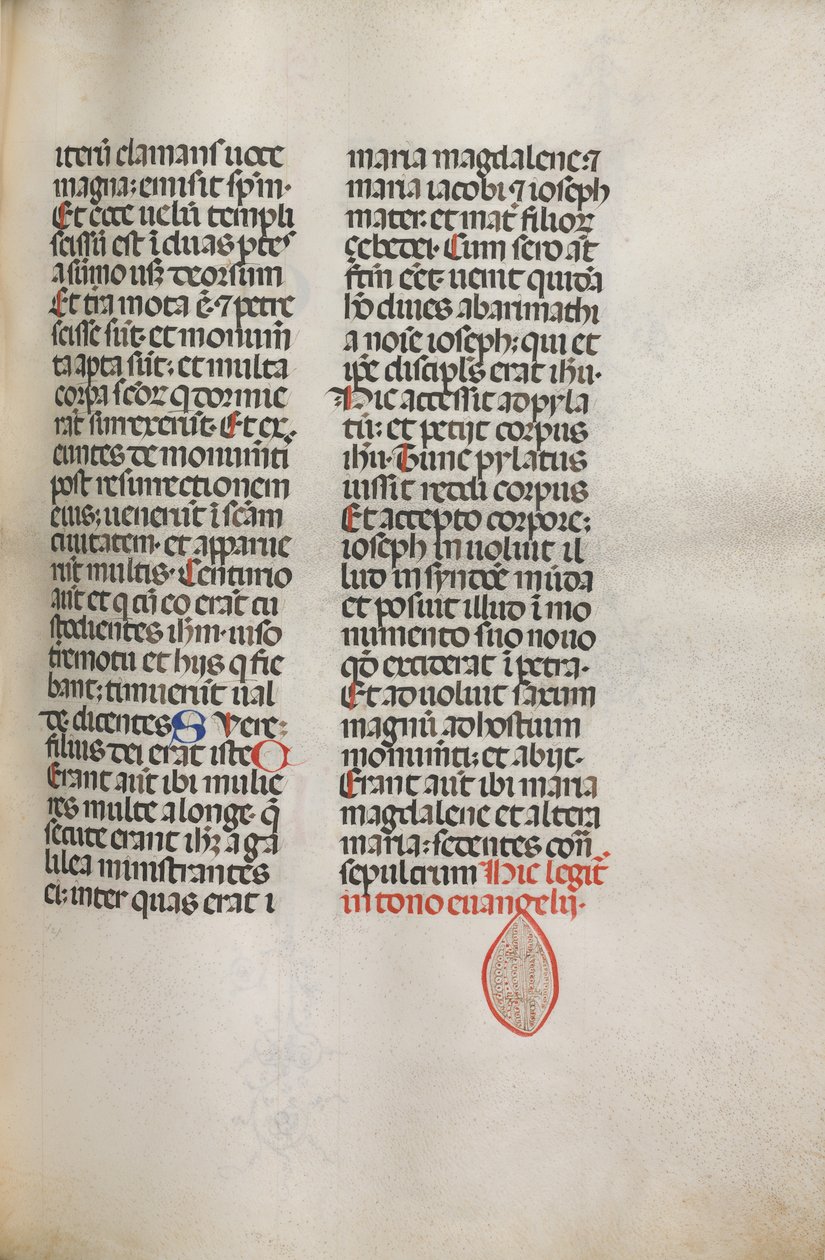 iterū clamans uoce
magna; emisit sp̄m·
Et ecce uelū templi
scissū est ī duas p̱tes
a sūmo usqꝫ deorsum
Et tr̄a mota ē·⁊ petre
scisse sūt· et monum̄
ta apta sūt; et multa
corpa sc̄oꝝ q̱ dormie
rāt surrexerūt· Et ex
euntes de monum̄ti
post resurrectionem
eius; uenerūt ī sc̄am
ciuitatem· et apparue
rūt multis· Centurio
aūt et q̱ cū eo erāt cu
stodientes ih̄m· uiso
t̄remotu et hijs q̱ fie
bant; timuerūt ual
de· dicentes S Vere:
filius dei erat iste C
Erant aūt ibi mulie
res multe a longe· q̄
secute erant ih̄ꝫ a ga
lilea ministrantes
ei; inter quas erat i
maria magdalene:⁊
maria iacobi ⁊ ioseph
mater· et mat̄ filioꝝ
çebedei· Cum sero aūt
f̄tm eēt· uenit quidā
hō diues ab arimathi
a noīe ioseph; qui et
ip̄e discipl̄s erat ih̄u·
Hic accessit ad pyla
tū: et petijt corpus
ih̄u· Tunc pylatus
iussit reddi corpus
Et accepto corpore;
ioseph inuoluit il
lud in syndoē mūda
et posuit illud ī mo
numento suo nouo
qd̄ exciderat ī petra·
Et aduoluit saxum
magnū ad hostium
monum̄ti; et abijt·
Erant aūt ibi maria
magdalene et altera
maria: sedentes con̄
sepulcrum Hic legit̄
in tono euangelij·